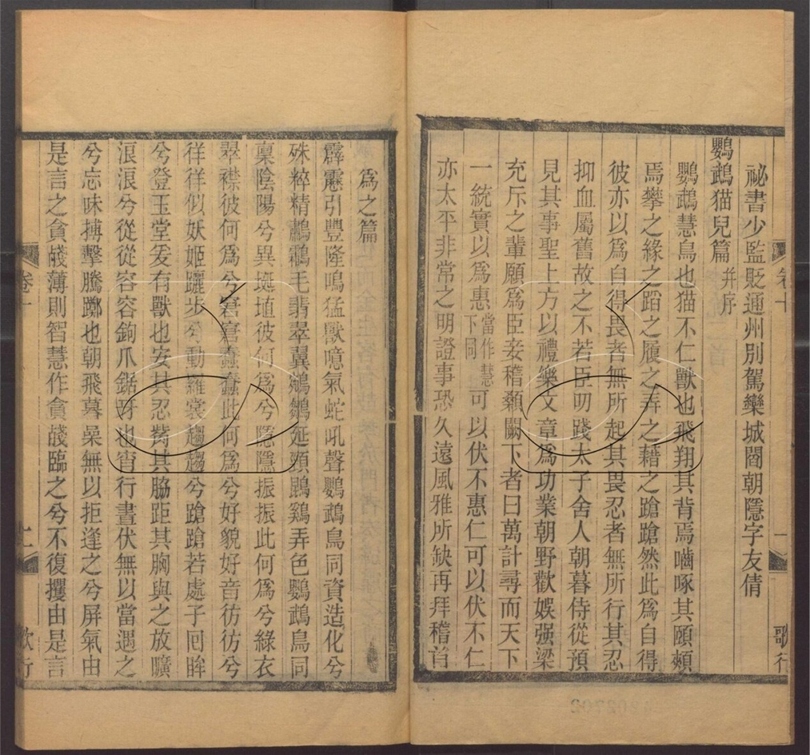 祕書少監貶通州別駕欒城閻朝隱字友倩
鸚鵡猫兒篇 并序
鸚鵡慧鳥也猫不仁獸也飛翔其背焉嚙啄其頤頰
焉攀之緣之蹈之履之弄之藉之蹌蹌然此爲自得
彼亦以爲自得畏者無所起其畏忍者無所行其忍
抑血屬舊故之不若臣叨踐太子舍人朝暮侍從預
見其事聖上方以禮樂文章爲功業朝野歡娛强梁
充斥之輩願爲臣妾稽顙闕下者日萬計尋而天下
一統實以爲惠當作慧下同可以伏不惠仁可以伏不仁
亦太平非常之明證事恐久遠風雅所缺再拜稽首
爲之篇
霹靂引豐隆鳴猛獸噫氣蛇吼聲鸚鵡鳥同資造化兮
殊粹精鸕鷀毛翡翠翼鵷鶵延頸鵾鷄弄色鸚鵡鳥同
稟陰陽兮異埏埴彼何爲兮隱隱振振此何爲兮綠衣
翠襟彼何爲兮窘窘蠢蠢此何爲兮好貌好音彷彷兮
徉徉似妖姬躧步兮動羅裳趨趨兮蹌蹌若處子回眸
兮登玉堂爰有獸也安其忍觜其脇距其胸與之放曠
浪浪兮從從容容鉤爪鋸牙也宵行晝伏無以當遇之
兮忘味摶擊騰躑也朝飛暮噪無以拒逢之兮屏氣由
是言之貪賤薄則智慧作貪賤臨之兮不復攖由是言
卷十
一
歌行
卷十
二
歌行